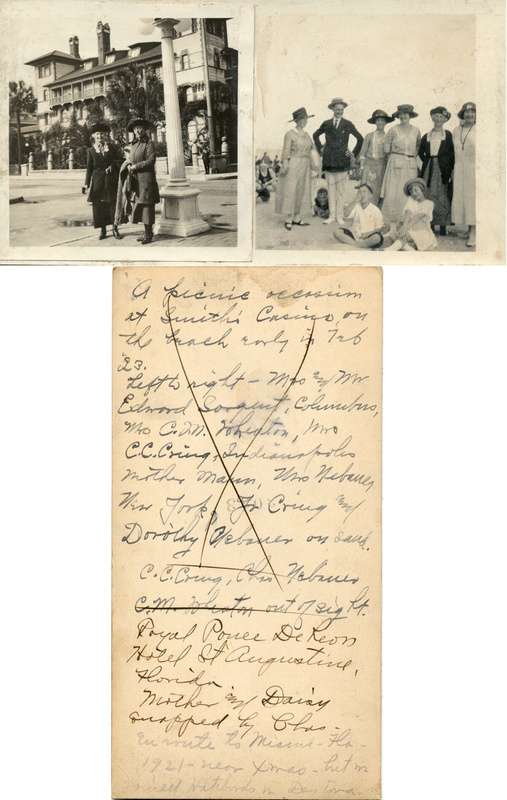 A picnic occassion
at Smith's Casino, on
the beach early in Feb
'23.
Left to right - Mrs and Mr
Edward Sargent, Columbus,
Mrs C.M. Wheaton, Mrs
C.C. Cring, Indianapolis
Mother Mann, Mrs Nebauer
New York, Jr Cring and
Dorothy Nebauer on sand.
C.C. Cring, Chas Nebauer
C.M. Wheaton out of sight.
Royal Ponce De Leon
Hotel St Augustine,
Florida
Mother and Daisy
snapped by Chas-
En route to Miami - Fla -
1921 - near Xmas - but
in Daytona